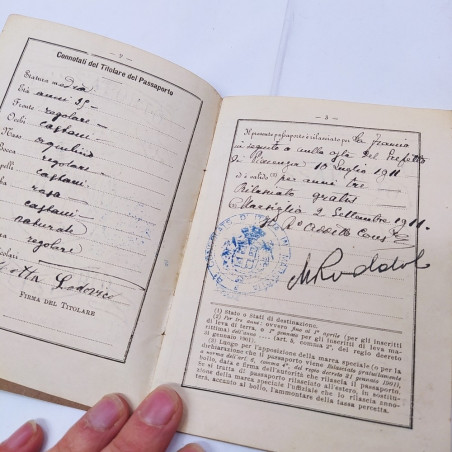 — 2 —
Connotati del Titolare del Passaporto
Statura media
Età anni 35
Fronte regolare
Occhi castani
Naso
Bocca regolare
castani
rasa
castani
naturale
regolare
Lodovico
FIRMA DEL TITOLARE
— 3 —
Il presente passaporto è rilasciato per la Francia
in seguito a nulla osta del Prefetto
di Piacenza 10 Luglio 1911
ed è valido (2) per anni tre
Rilasciato gratis
Marsiglia 2 Settembre 1911.
Il Ro
(1) Stato o Stati di destinazione.
(2) Per tre anni; ovvero fino al 1° aprile (per gli inscritti
di leva di terra, o 1° gennaio per gli inscritti di leva ma-
rittima) dell'anno ... (art. 5, comma 2°, del regio decreto
gennaio 1901).
(3) Luogo per l'apposizione della marca speciale (o per la
dichiarazione che il passaporto viene rilasciato gratuitamente
a norma dell'art. 2, comma 4°, del regio decreto 21 gennaio 1901),
bollo, data e firma dell'autorità che rilascia il passaporto.
Se si tratta di passaporto rilasciato all'estero, in sostitu-
zione della marca speciale l'ufficiale che lo rilascia anno-
terà, accanto al bollo, l'ammontare della tassa percetta.